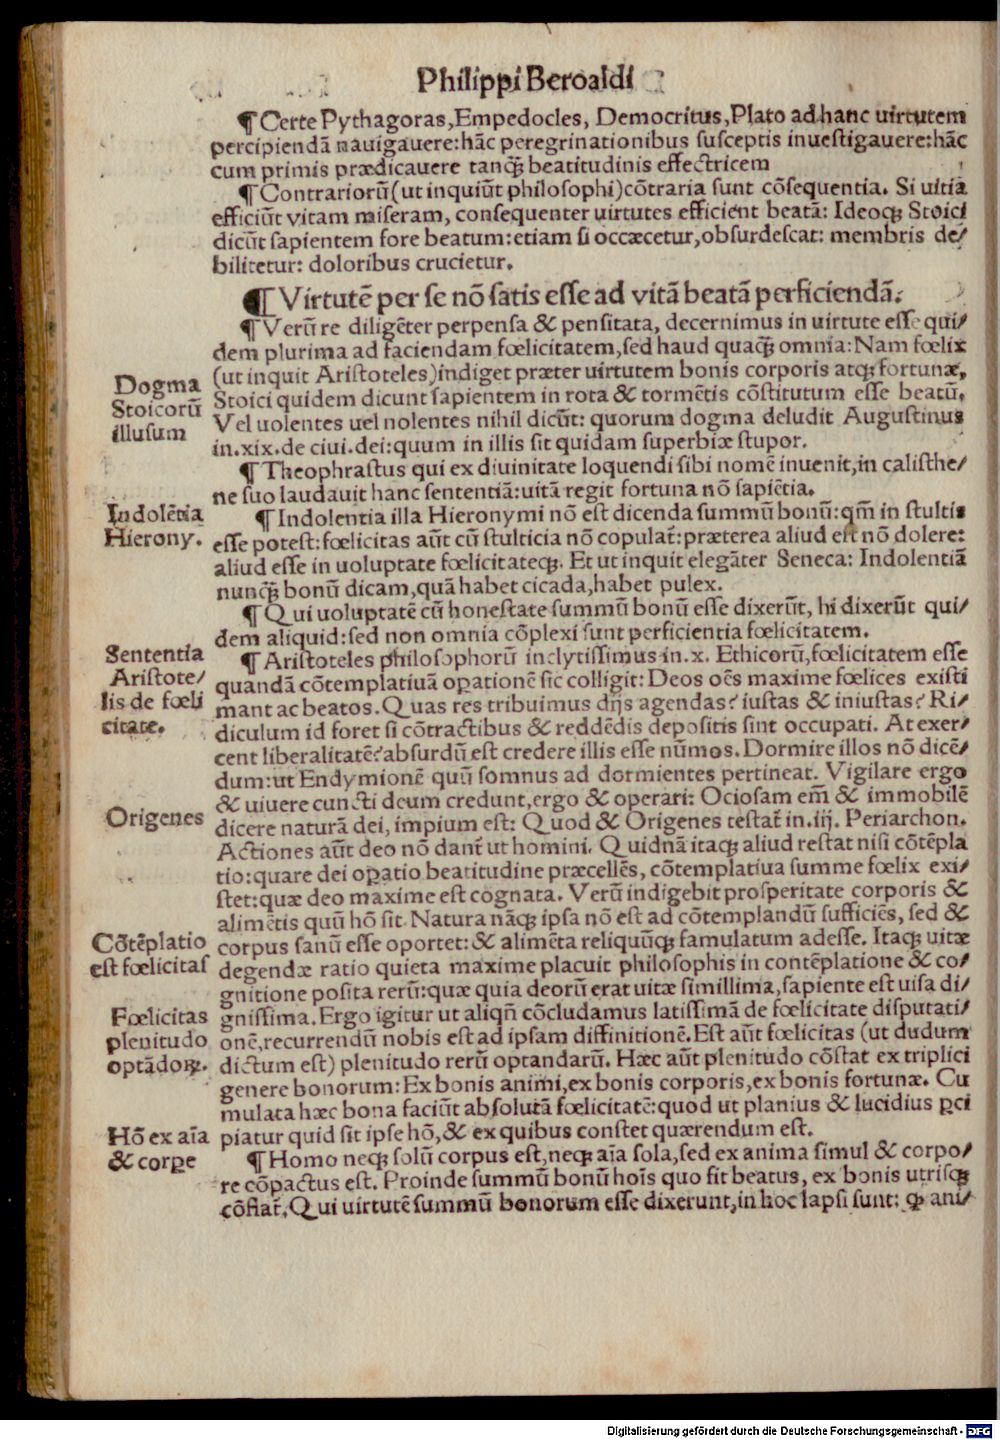 Philippi Beroaldi
¶ Certe Pythagoras, Empedocles, Democritus, Plato ad hanc uirtutem
percipiendā nauigauere: hāc peregrinationibus susceptis inuestigauere: hāc
cum primis prædicauere tanq̄ʒ beatitudinis effectricem
¶ Contrariorū (ut inquiūt philosophi) cōtraria sunt cōsequentia. Si uitia
efficiūt vitam miseram, consequenter uirtutes efficient beatā: Ideoqʒ Stoici
dicūt sapientem fore beatum: etiam si occæcetur, obsurdescat: membris de/
bilitetur: doloribus crucietur.
¶ Virtutē per se nō satis esse ad vitā beatā perficiendā.
¶ Verū re diligēter perpensa & pensitata, decernimus in uirtute esse qui/
dem plurima ad faciendam fœlicitatem, sed haud quaq̄ʒ omnia: Nam fœlix
(ut inquit Aristoteles) indiget præter uirtutem bonis corporis atqʒ fortunæ,
Dogma
Stoicorū
illusum
Stoici quidem dicunt sapientem in rota & tormētis cōstitutum esse beatū,
Vel uolentes uel nolentes nihil dicūt: quorum dogma deludit Augustinus
in .xix. de ciui. dei: quum in illis sit quidam superbiæ stupor.
¶ Theophrastus qui ex diuinitate loquendi sibi nomē inuenit, in calisthe/
ne suo laudauit hanc sententiā: uitā regit fortuna nō sapiētia.
Indolētia
Hierony.
¶ Indolentia illa Hieronymi nō est dicenda summū bonū: qm̄ in stultis
esse potest: fœlicitas aūt cū stulticia nō copulat̄: præterea aliud est nō dolere:
aliud esse in uoluptate fœlicitateqʒ. Et ut inquit elegāter Seneca: Indolentiā
nunq̄ʒ bonū dicam, quā habet cicada, habet pulex.
¶ Qui uoluptatē cū honestate summū bonū esse dixerūt, hi dixerūt qui/
dem aliquid: sed non omnia cōplexi sunt perficientia fœlicitatem.
Sententia
Aristote/
lis de fœli
citate.
¶ Aristoteles philosophorū inclytissimus in .x. Ethicorū, fœlicitatem esse
quandā cōtemplatiuā oꝑationē sic colligit: Deos oēs maxime fœlices existi
mant ac beatos. Quas res tribuimus dijs agendas? iustas & iniustas? Ri/
diculum id foret si cōtractibus & reddēdis depositis sint occupati. At exer/
cent liberalitatē? absurdū est credere illis esse nūmos. Dormire illos nō dicē/
dum: ut Endymionē quū somnus ad dormientes pertineat. Vigilare ergo
& uiuere cuncti deum credunt, ergo & operari: Ociosam em̄ & immobilē
Origenes
dicere naturā dei, impium est: Quod & Origenes testat̄ in .iij. Periarchon.
Actiones aūt deo nō dant̄ ut homini. Quidnā itaqʒ aliud restat nisi cōtēpla
tio: quare dei oꝑatio beatitudine præcellēs, cōtemplatiua summe fœlix exi/
stet: quæ deo maxime est cognata. Verū indigebit prosperitate corporis &
alimētis quū hō sit. Natura nāqʒ ipsa nō est ad cōtemplandū sufficiēs, sed &
Cōtēplatio
est fœlicitas
corpus sanū esse oportet: & alimēta reliquūqʒ famulatum adesse. Itaqʒ uitæ
degendæ ratio quieta maxime placuit philosophis in contēplatione & co/
gnitione posita rerū: quæ quia deorū erat uitæ simillima, sapiente est uisa di/
Fœlicitas
plenitudo
optādoꝝ.
gnissima. Ergo igitur ut aliqn̄ cōcludamus latissimā de fœlicitate disputati/
onē, recurrendū nobis est ad ipsam diffinitionē. Est aūt fœlicitas (ut dudum
dictum est) plenitudo rerū optandarū. Hæc aūt plenitudo cōstat ex triplici
genere bonorum: Ex bonis animi, ex bonis corporis, ex bonis fortunæ. Cu
mulata hæc bona faciūt absolutā fœlicitatē: quod ut planius & lucidius ꝑci
Hō ex aīa
& corpe
piatur quid sit ipse hō, & ex quibus constet quærendum est.
¶ Homo neqʒ solū corpus est, neqʒ aīa sola, sed ex anima simul & corpo/
re cōpactus est. Proinde summū bonū hoīs quo fit beatus, ex bonis utrisqʒ
cōflat̄. Qui uirtutē summū bonorum esse dixerunt, in hoc lapsi sunt: ꝙ ani/
Digitalisierung gefördert durch die Deutsche Forschungsgemeinschaft - DFG